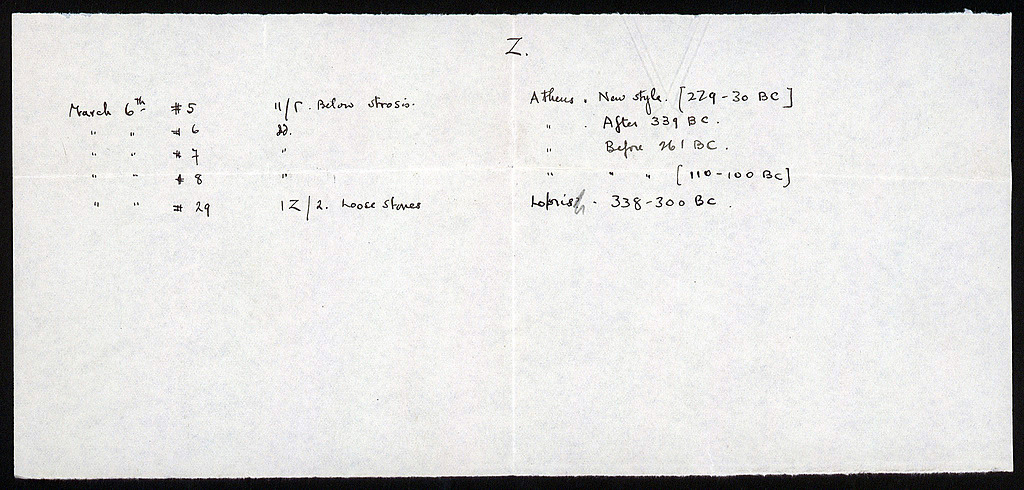 Z.
March 6th #5 11/Γ. Below strosis. Athens. New style. [229-30 BC]
" " #6 dd. " . After 339 BC.
" " #7 " " Before 261 BC.
" " #8 " " " " [110-100 BC]
" " #29 1Z/2. Loose stones 338-300 BC.